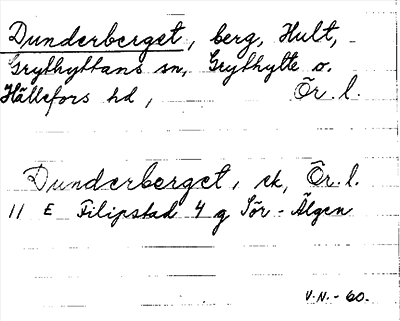 Dunderberget, berg, Hult,
Grythyttans sn, Grythytte o.
Hällefors hd, Ör. l.
Dunderberget, ek, Ör. l.
11 E Filipstad 4 g Sör-Älgen
V.N. - 60.